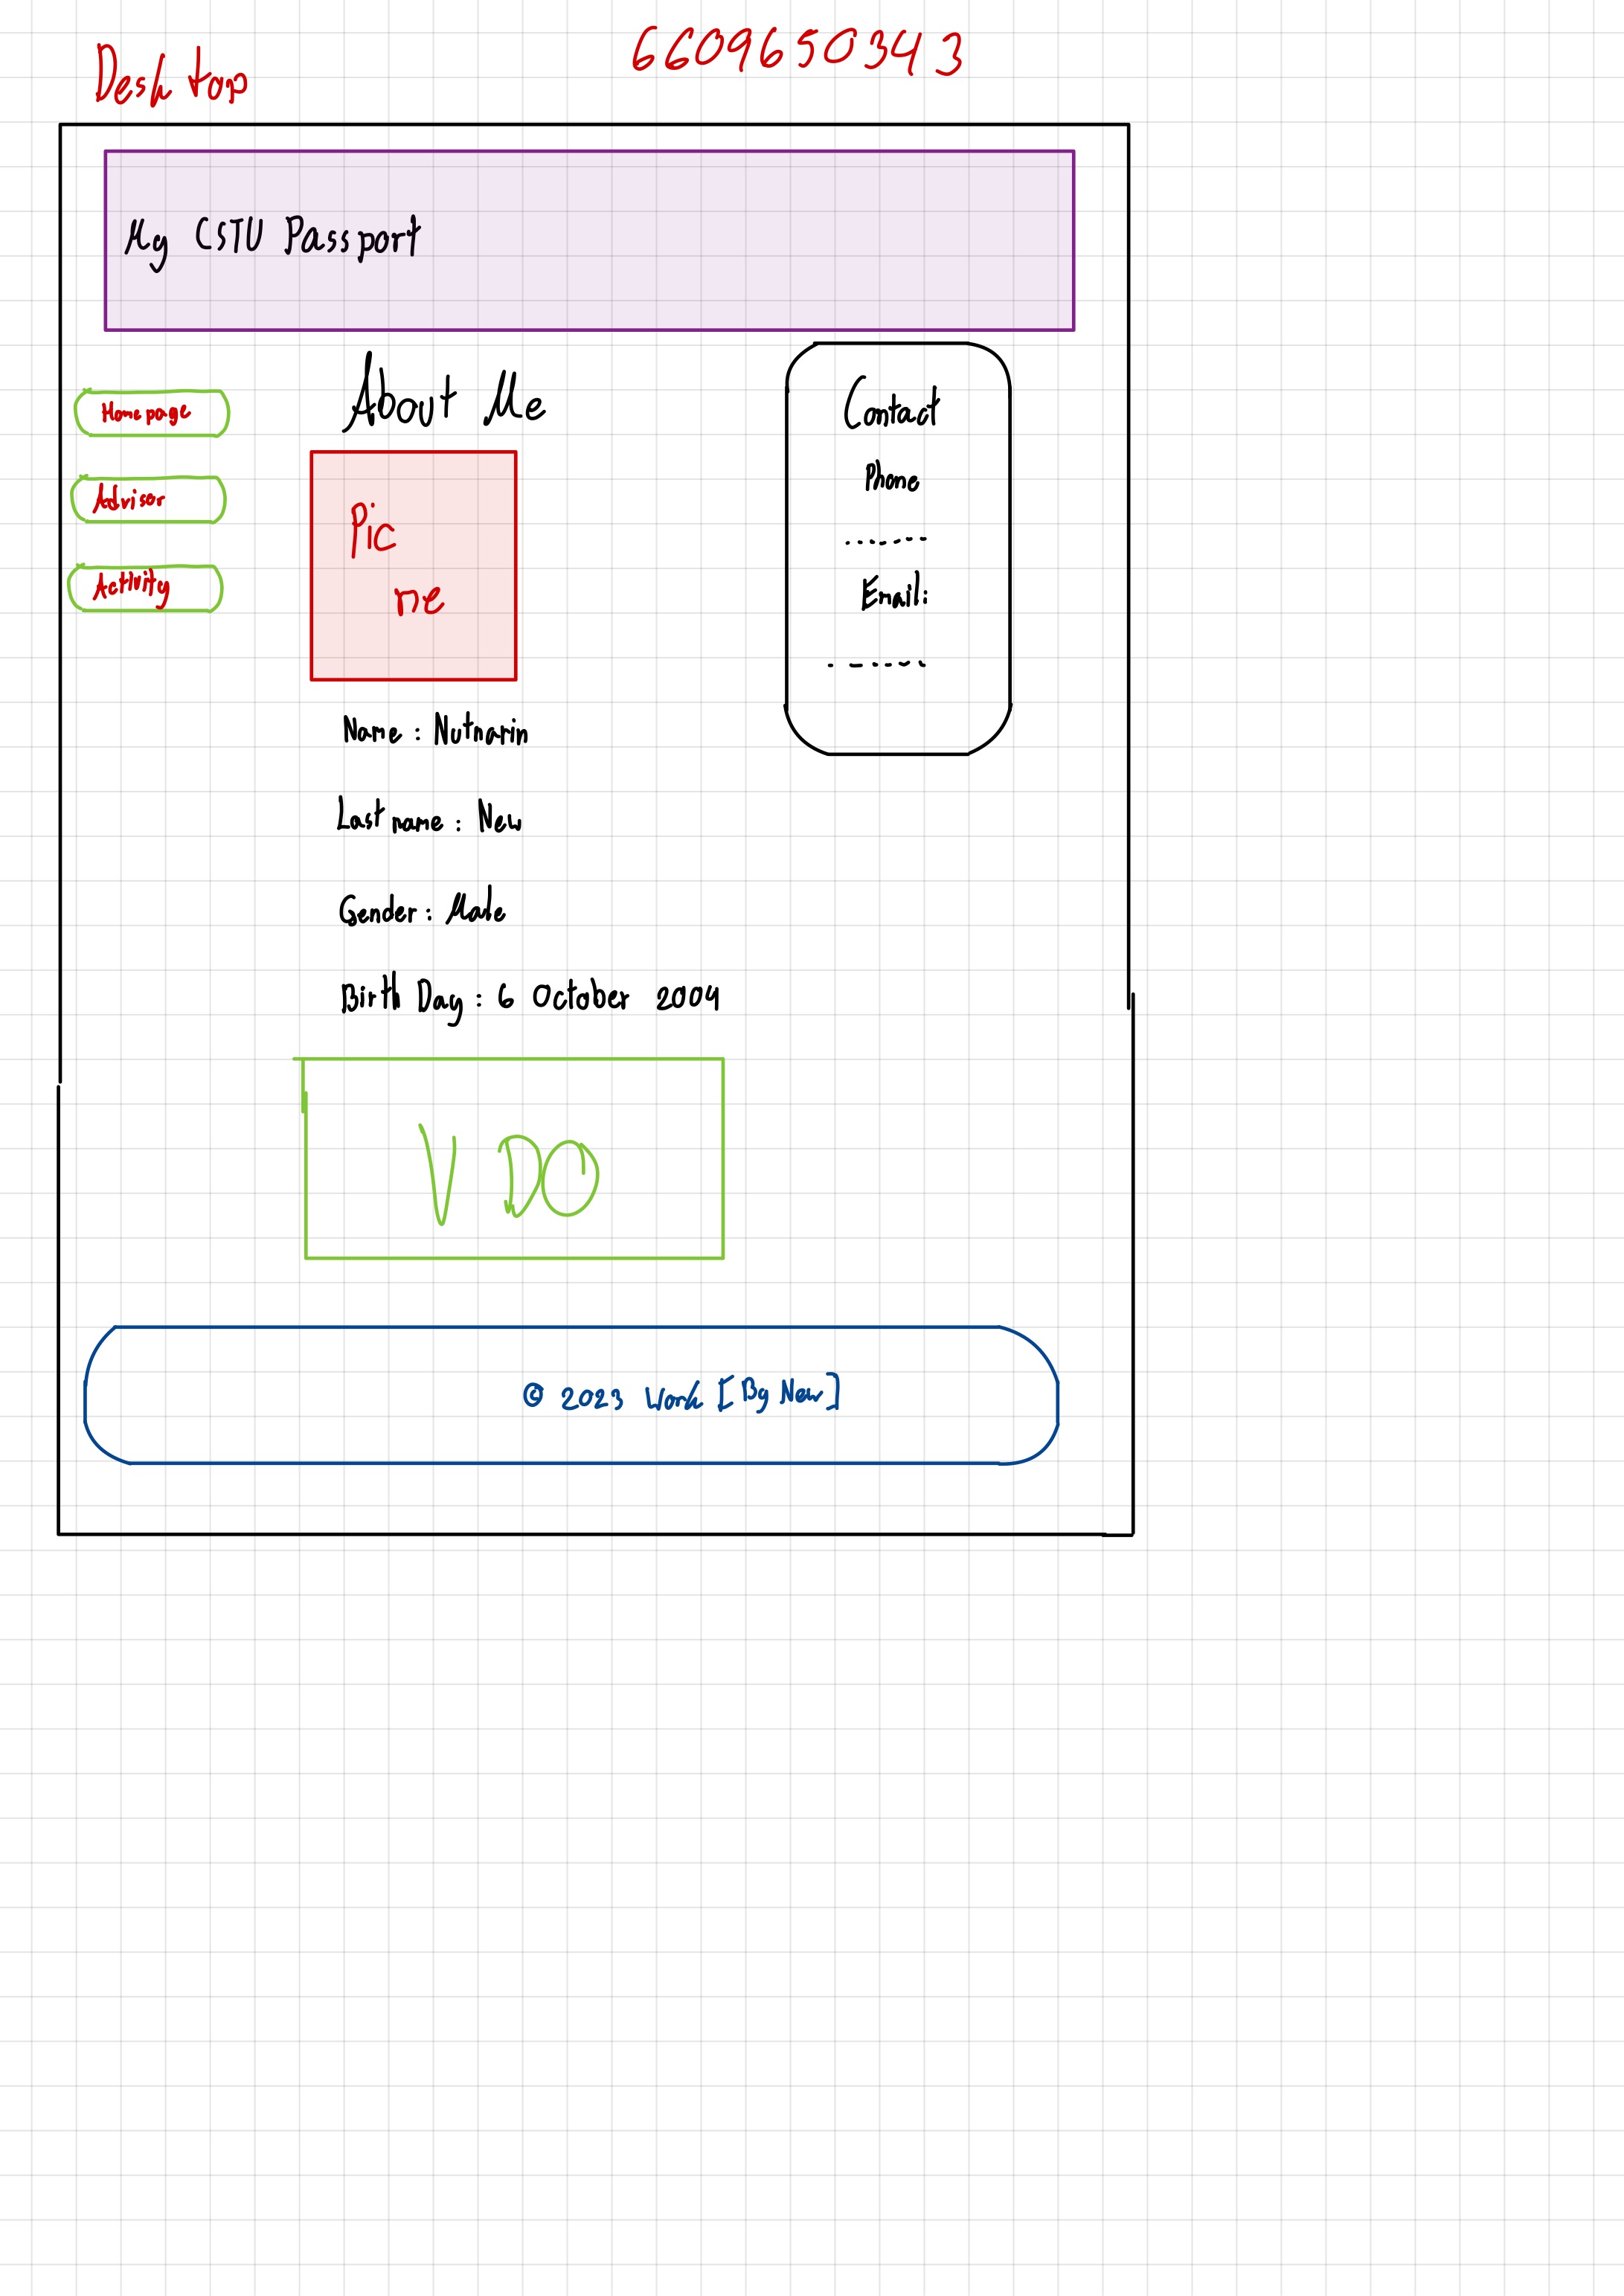 6609650343
Desktop
My CSTU Passport
Homepage
Advisor
Activity
About Me
Pic
me
Name : Nutnarin
Last name : New
Gender : Male
Birth Day : 6 October 2004
VDO
Contact
Phone
........
Email:
.......
© 2023 Work [By New]